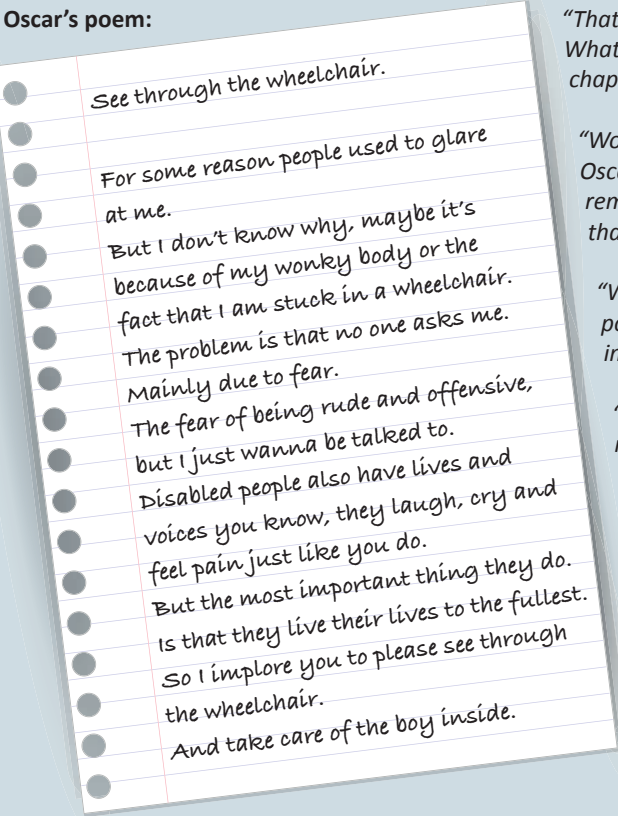 Oscar's poem:
See through the wheelchair.
For some reason people used to glare
at me.
But I don't know why, maybe it's
because of my wonky body or the
fact that I am stuck in a wheelchair.
The problem is that no one asks me.
Mainly due to fear.
The fear of being rude and offensive,
but I just wanna be talked to.
Disabled people also have lives and
voices you know, they laugh, cry and
feel pain just like you do.
But the most important thing they do.
Is that they live their lives to the fullest.
So I implore you to please see through
the wheelchair.
And take care of the boy inside.
"That
What
chap
"Wo
Osca
rem
tha
"V
po
in